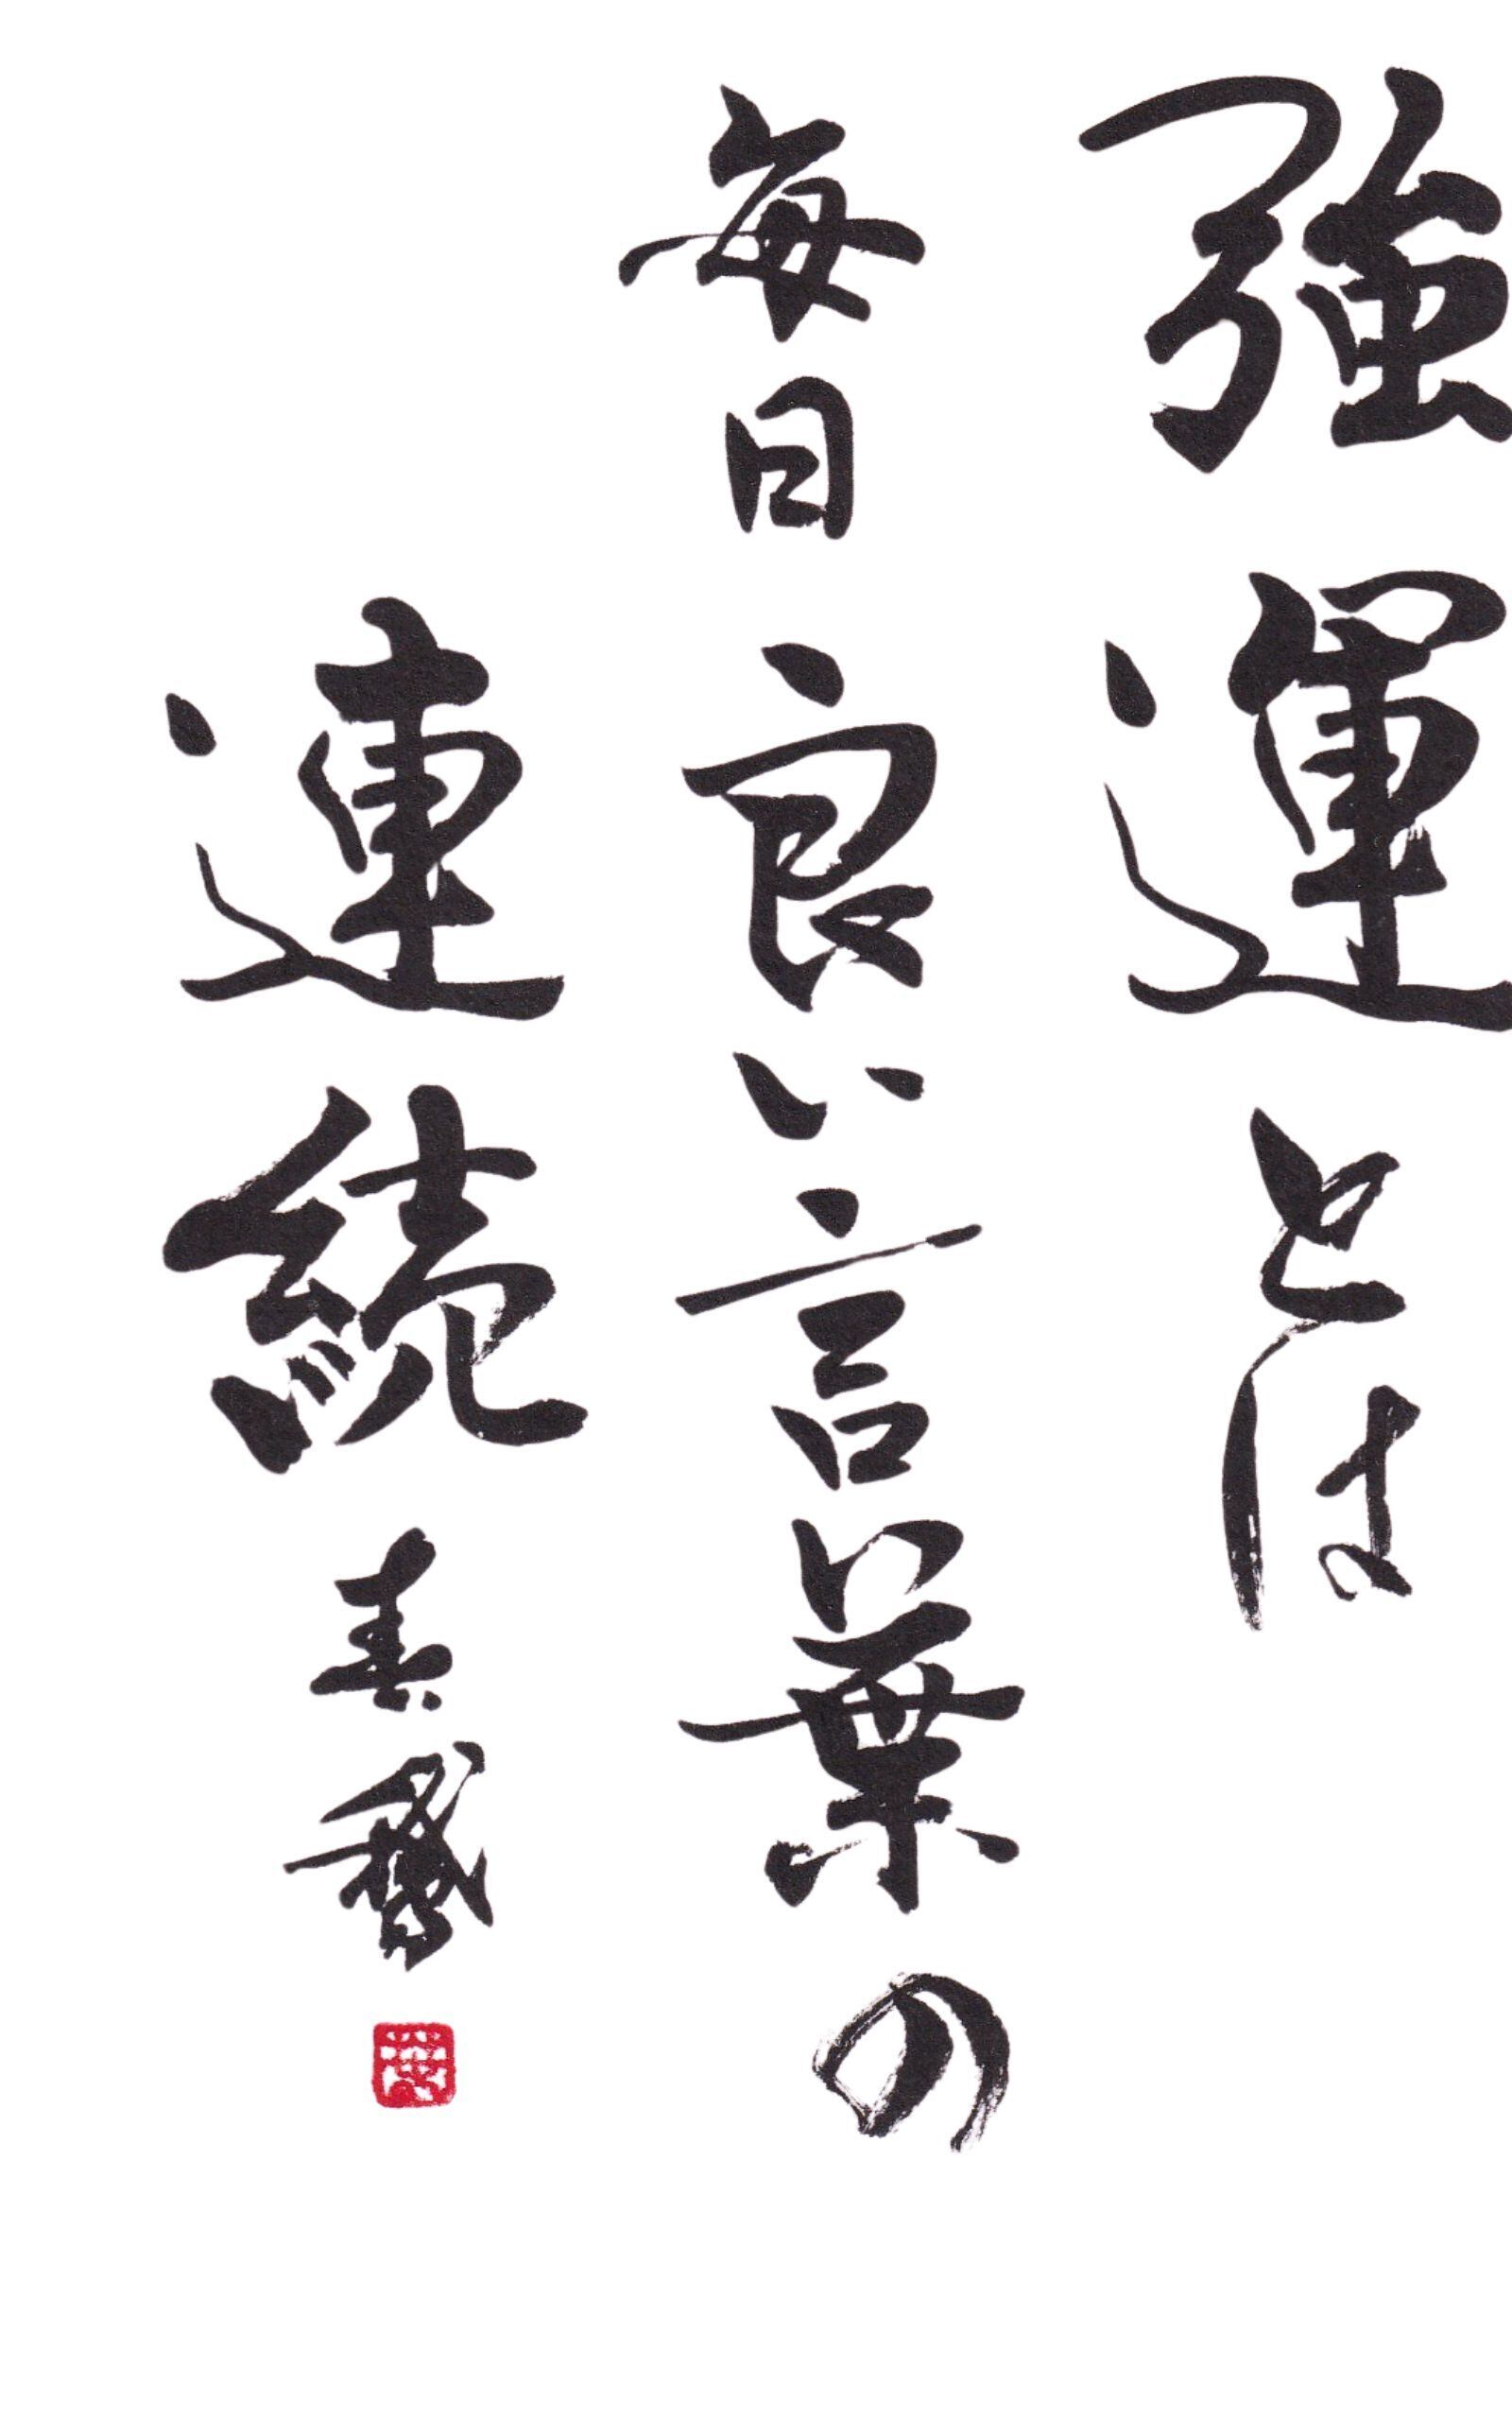 強運とは
毎日良い言葉の
連続